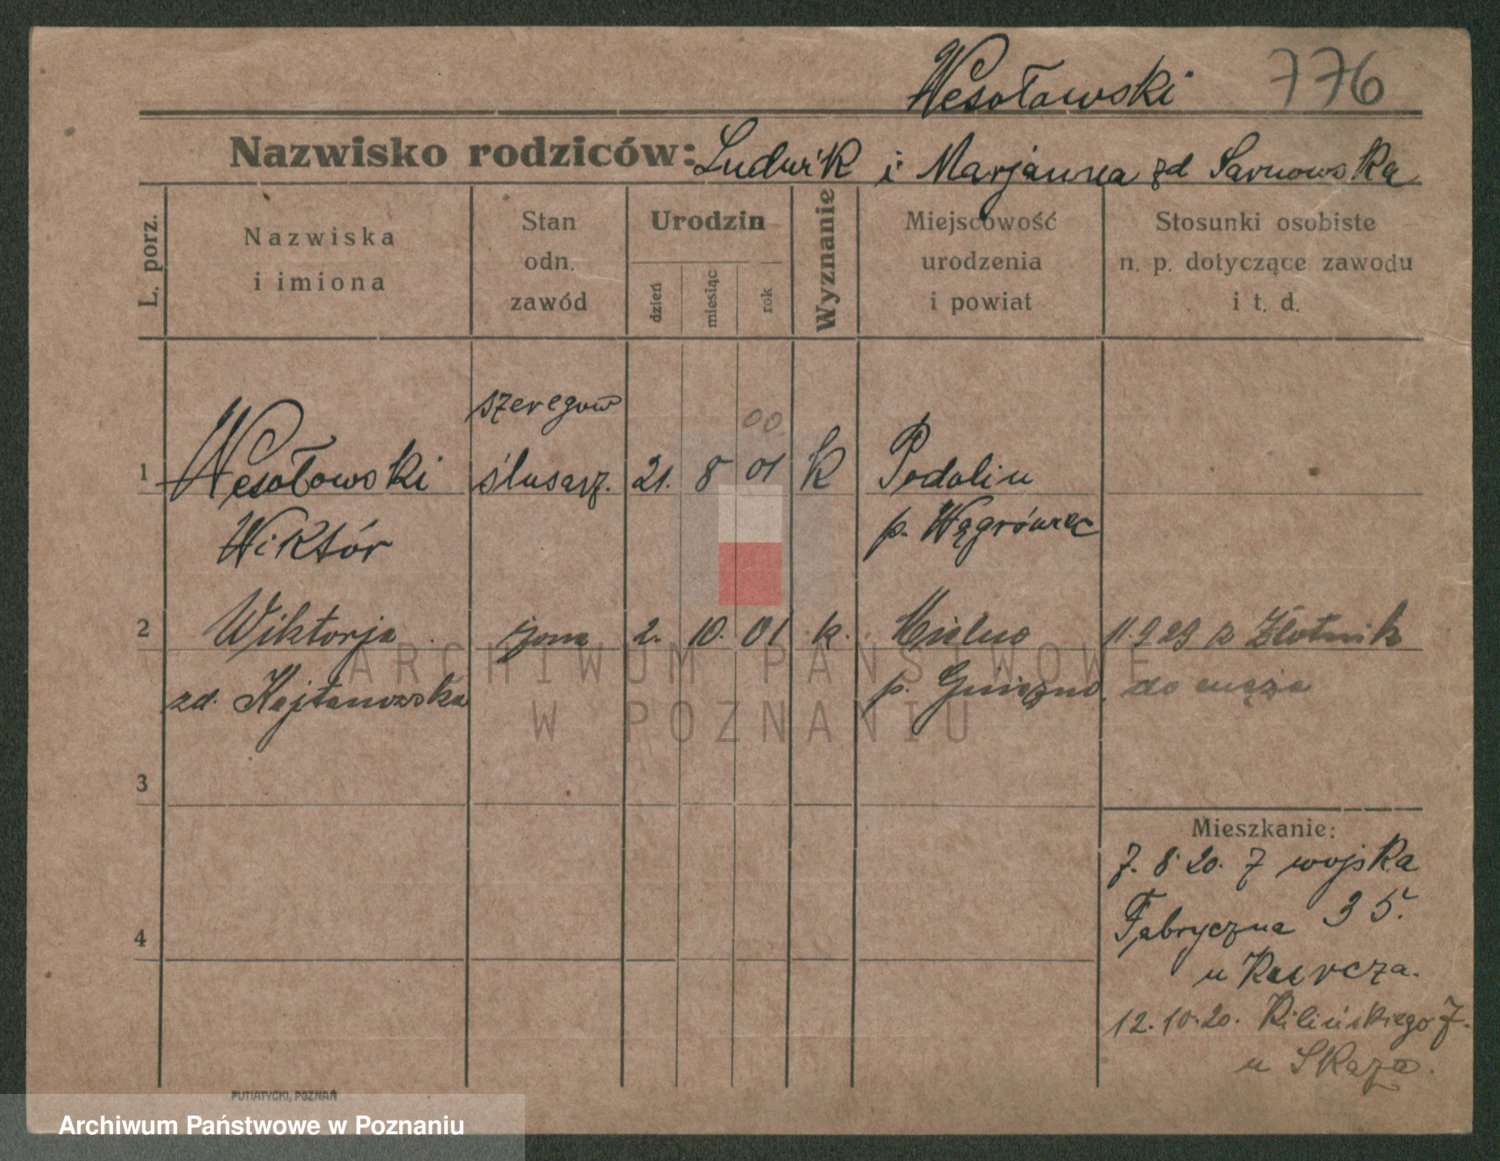 Wesołowski 776
Nazwisko rodziców: Ludwik i Marjanna zd Sarnowska
L. porz.
Nazwiska
i imiona
Stan
odn.
zawód
Urodzin
dzień
miesiąc
rok
Wyznanie
Miejscowość
urodzenia
i powiat
Stosunki osobiste
n. p. dotyczące zawodu
i t. d.
szeregow
00.
1 Wesołowski ślusarz. 21. 8 01 k Podolin
Wiktór p. Wągrówiec
2 Wiktorja żona 2. 10. 01 k. Mielno 11.9.29 z Złotnik
zd. Kajtanowska p. Gniezno do męża
3
4
Mieszkanie:
7. 8. 20. z wojska
Fabryczna 35.
u
12.10.20. Kilińskiego 7.
u Skaza.
PUTIATYCKI, POZNAŃ
ARCHIWUM PAŃSTWOWE
W POZNANIU
Archiwum Państwowe w Poznaniu